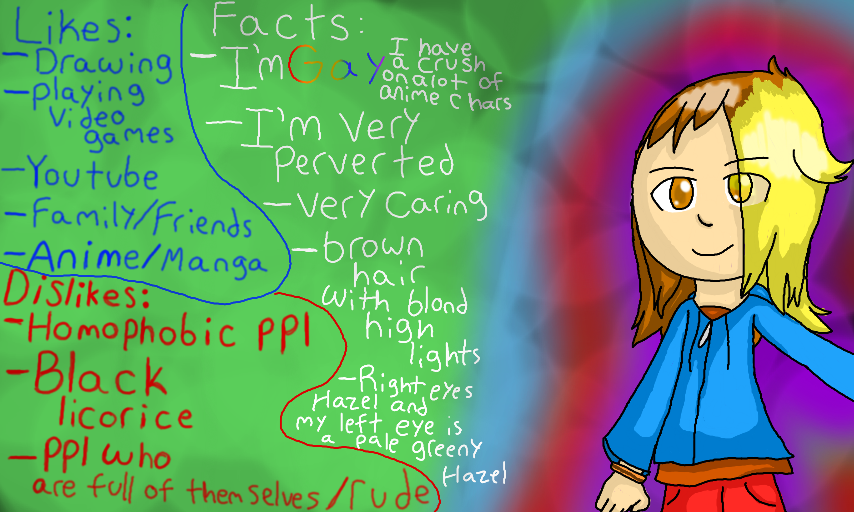 Likes:
-Drawing
-playing
video
games
-Youtube
-Family/Friends
-Anime/Manga
Dislikes:
-Homophobic ppl
-Black
licorice
-ppl who
are full of themselves/rude
Facts:
-I'm Gay
I have
a crush
on a lot of
anime chars
-I'm very
perverted
-very caring
-brown
hair
with blond
high
lights
-Right eyes
Hazel and
my left eye is
a pale greeny
Hazel